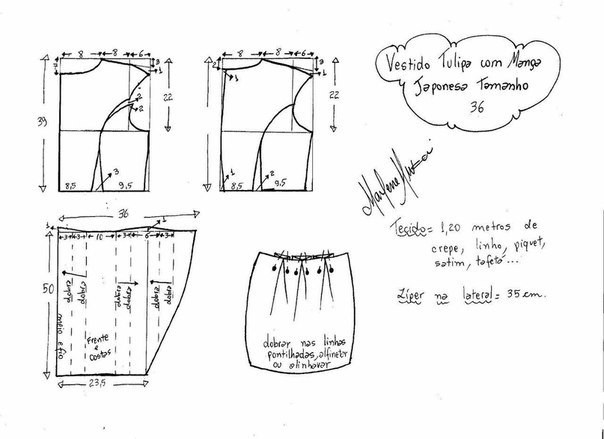 Vestido Tulipa com Manga
Japonesa Tamanho
36
Marlene Mukai
Tecido = 1,20 metros de
crepe, linho, piquet,
satim, tafetá...
Zíper na lateral = 35 cm.
8 8 6
3
1
1
39
22
2
2
3
8,5
9,5
8 8 6
3
1
1
22
2
1
8,5
9,5
36
1
1
3 3 10 3 6 3
50
dobra
dobra
dobra
dobra
dobra
dobra
meio e fio
frente
e
costas
23,5
dobrar nas linhas
pontilhadas, alfinetar
ou alinhavar